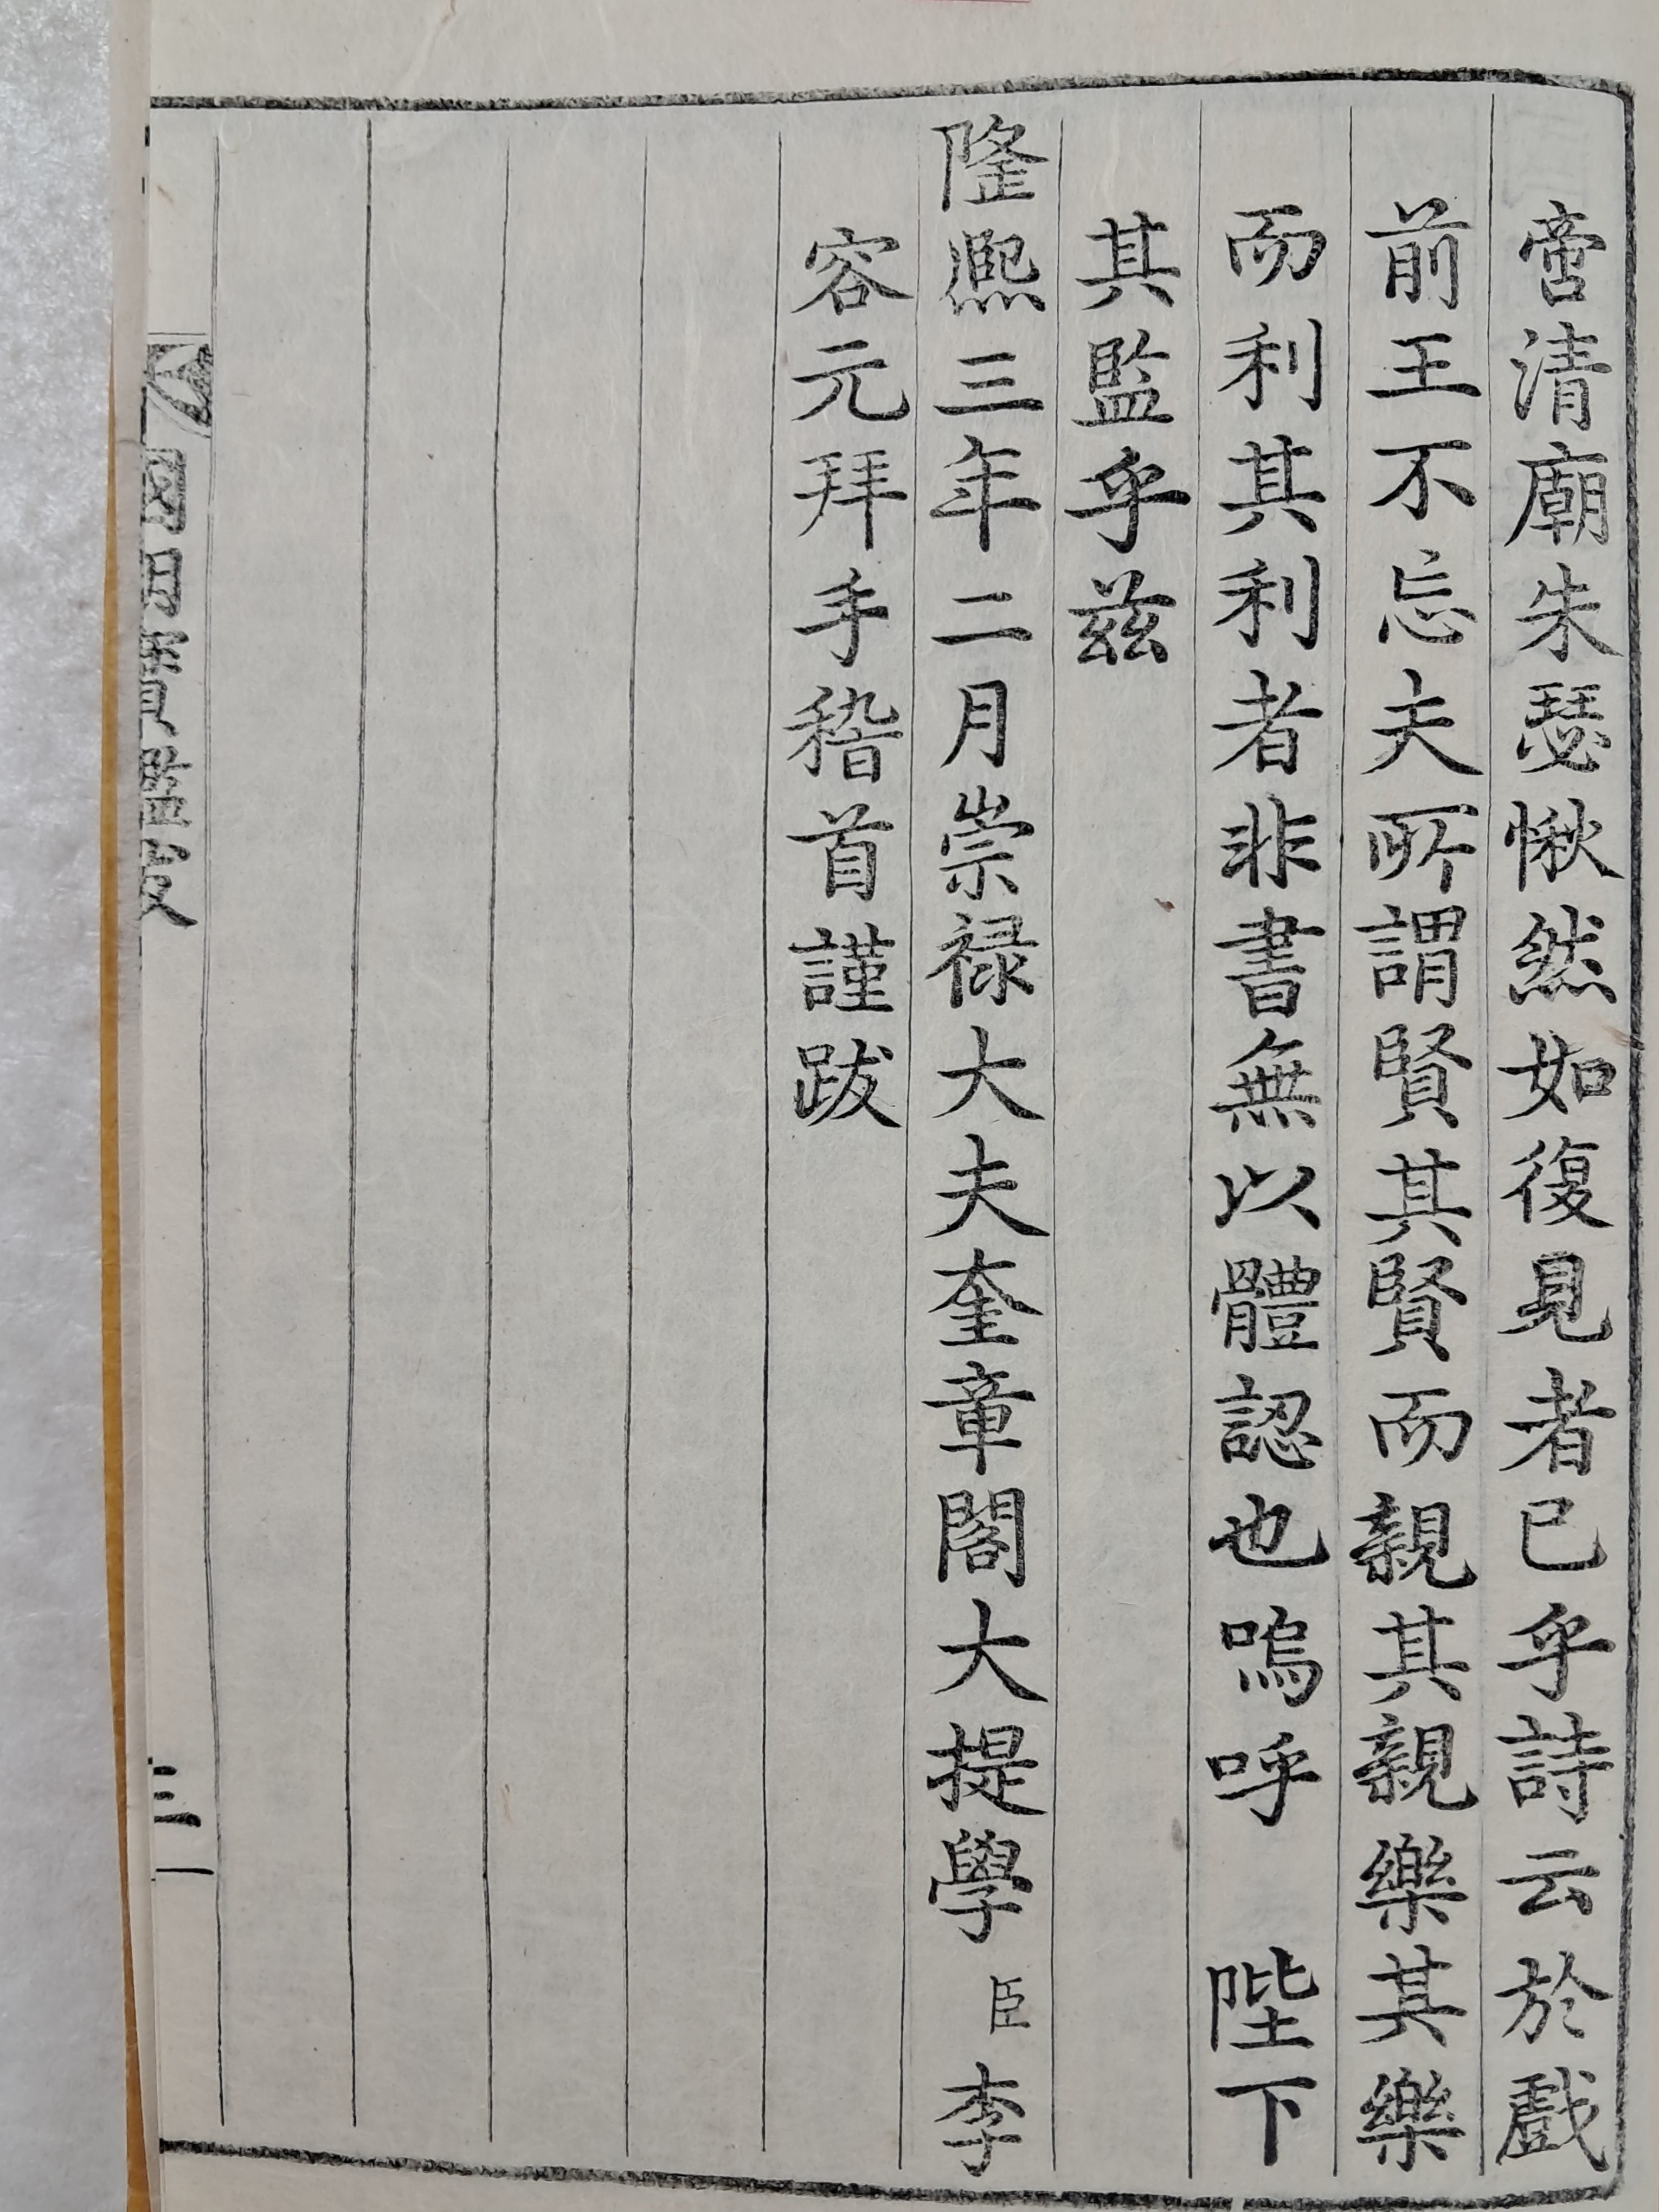 啻清廟朱瑟愀然如復見者已乎詩云於戲
前王不忘夫所謂賢其賢而親其親樂其樂
而利其利者非書無以體認也嗚呼　陛下
其監乎兹
隆熙三年二月崇禄大夫奎章閣大提學臣李
容元拜手稽首謹跋
國朝寶鑑跋
三